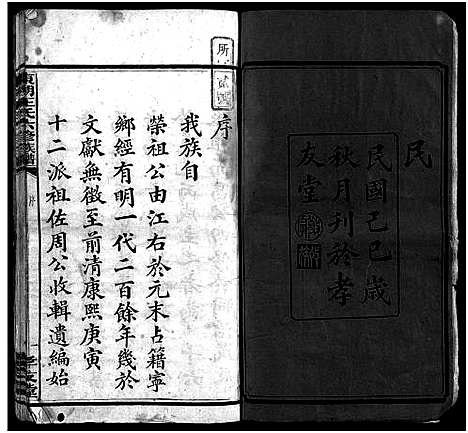 民
民國己巳歲
秋月刊於孝
友堂
序
我族自
榮祖公由江右於元末占籍寧
鄉經有明一代二百餘年幾於
文獻無徵至前清康熙庚寅
十二派祖佐周公收輯遺編始
序